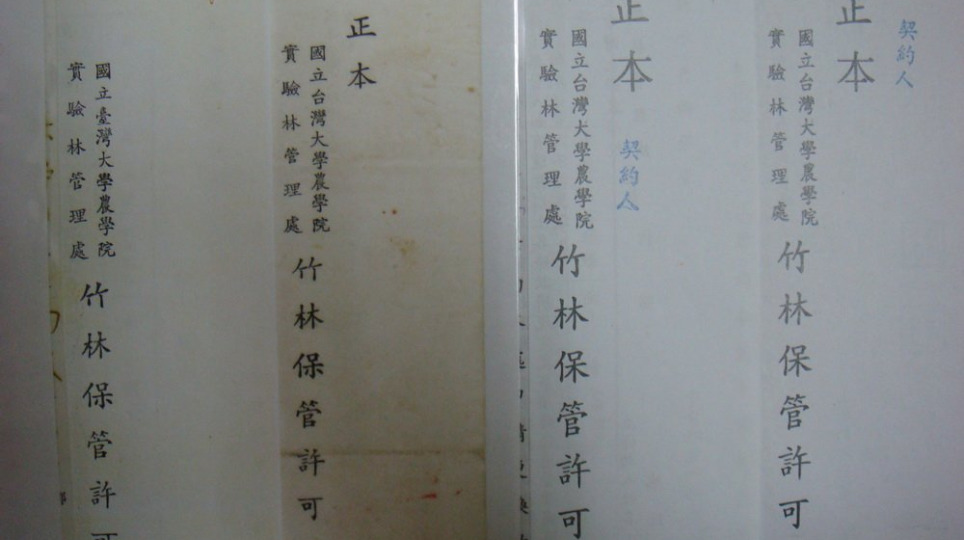 契約人
正本
國立台灣大學農學院
實驗林管理處
竹林保管許可
正本
契約人
國立台灣大學農學院
實驗林管理處
竹林保管許可
正本
國立台灣大學農學院
實驗林管理處
竹林保管許可
國立臺灣大學農學院
實驗林管理處
竹林保管許可